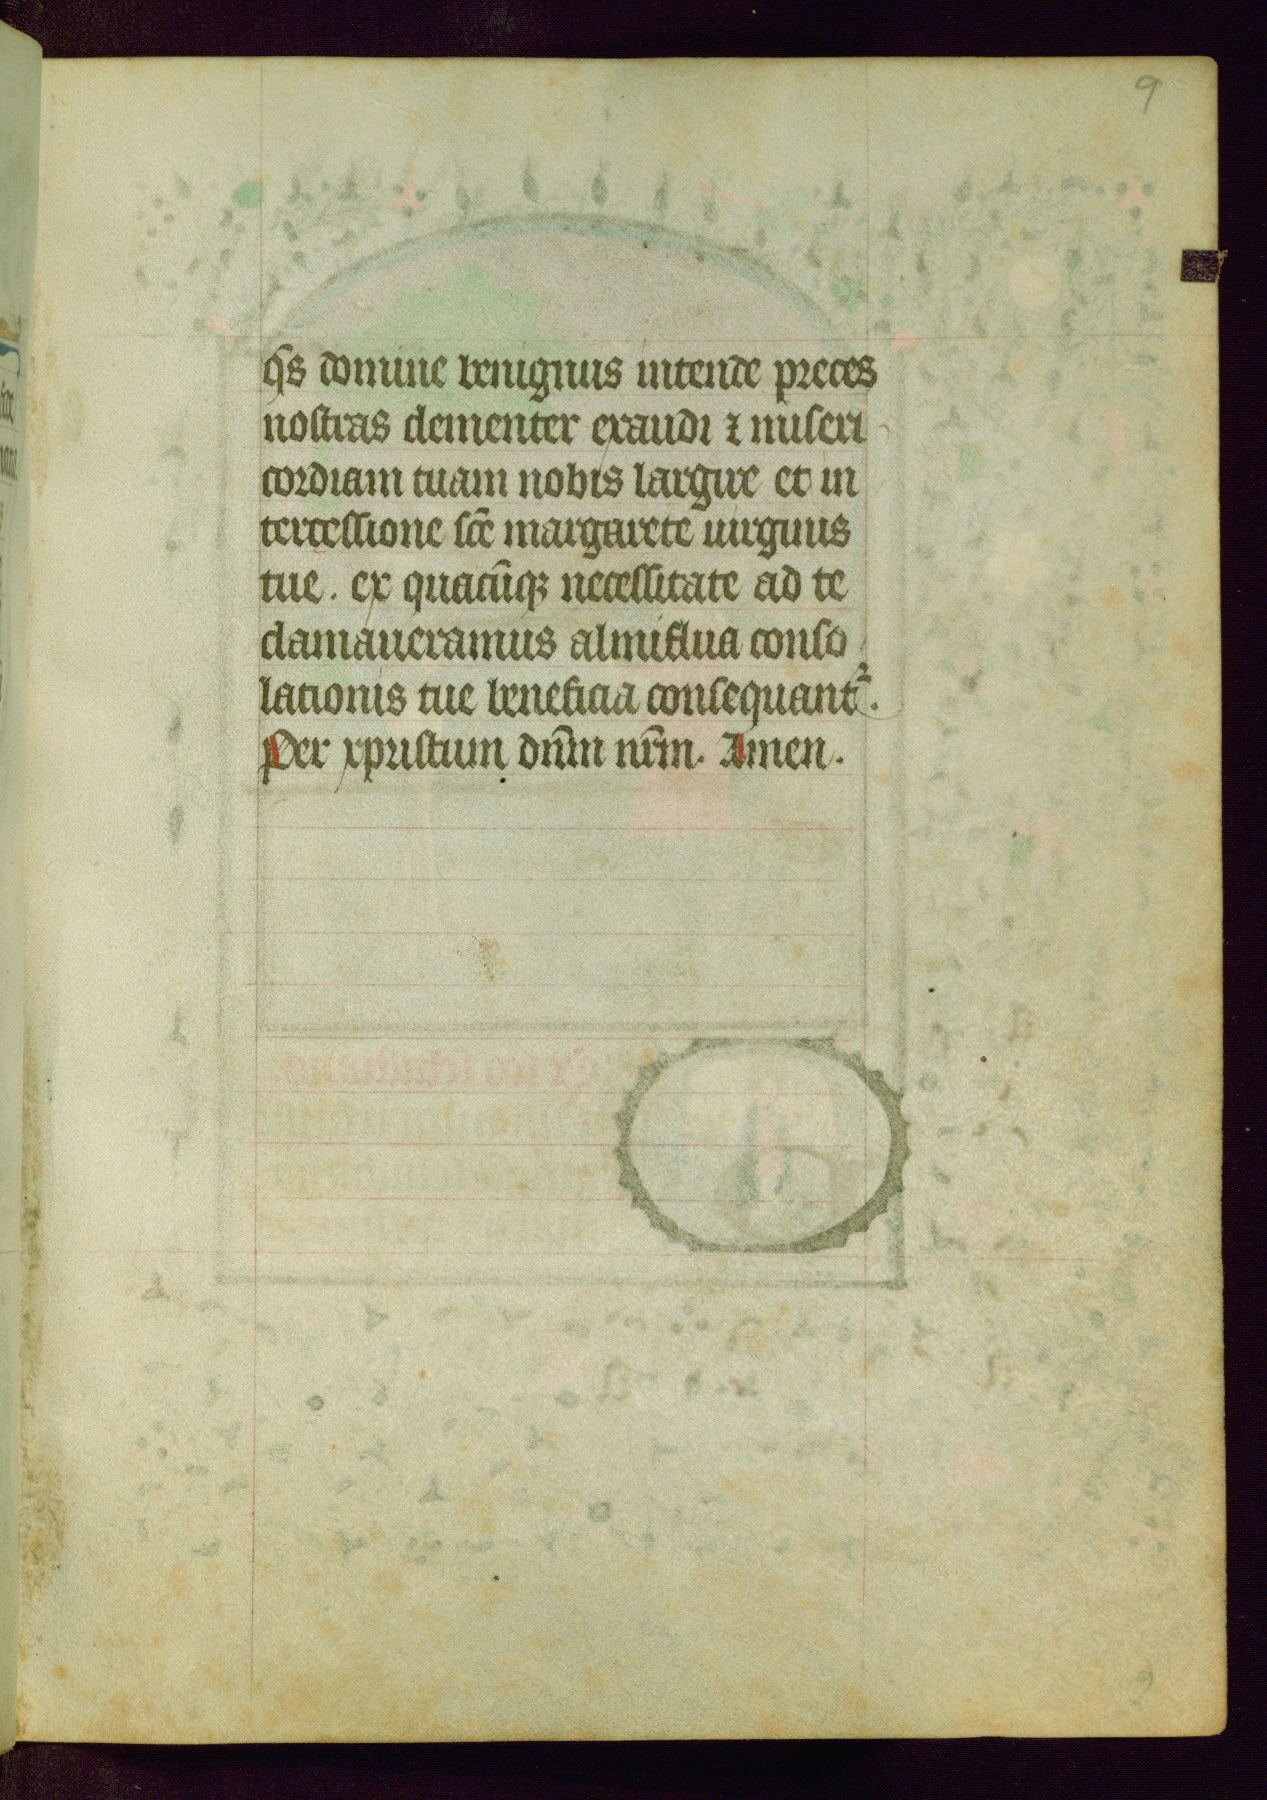 9
qs domine benignus intende preces
nostras clementer exaudi ⁊ miseri
cordiam tuam nobis largire et in
tercessione sc̄e margarete uirginis
tue. ex quacūqꝫ necessitate ad te
clamaueramus almiflua conso
lationis tue beneficia consequant᷑.
Per xpristum dn̄m nr̄m. Amen.